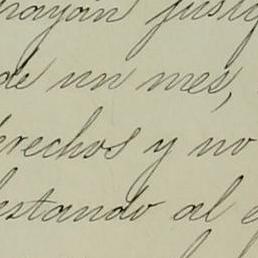 hayan justi
de un mes,
erechos y no
estando al e